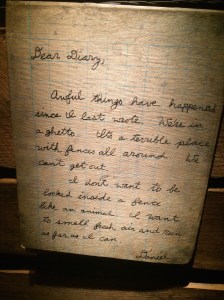 Dear Diary,
Awful things have happened
since I last wrote. We're in
a ghetto. It's a terrible place
with fences all around. We
can't get out.
I don't want to be
locked inside a fence
like an animal. I want
to smell fresh air and run
as far as I can.
Daniel